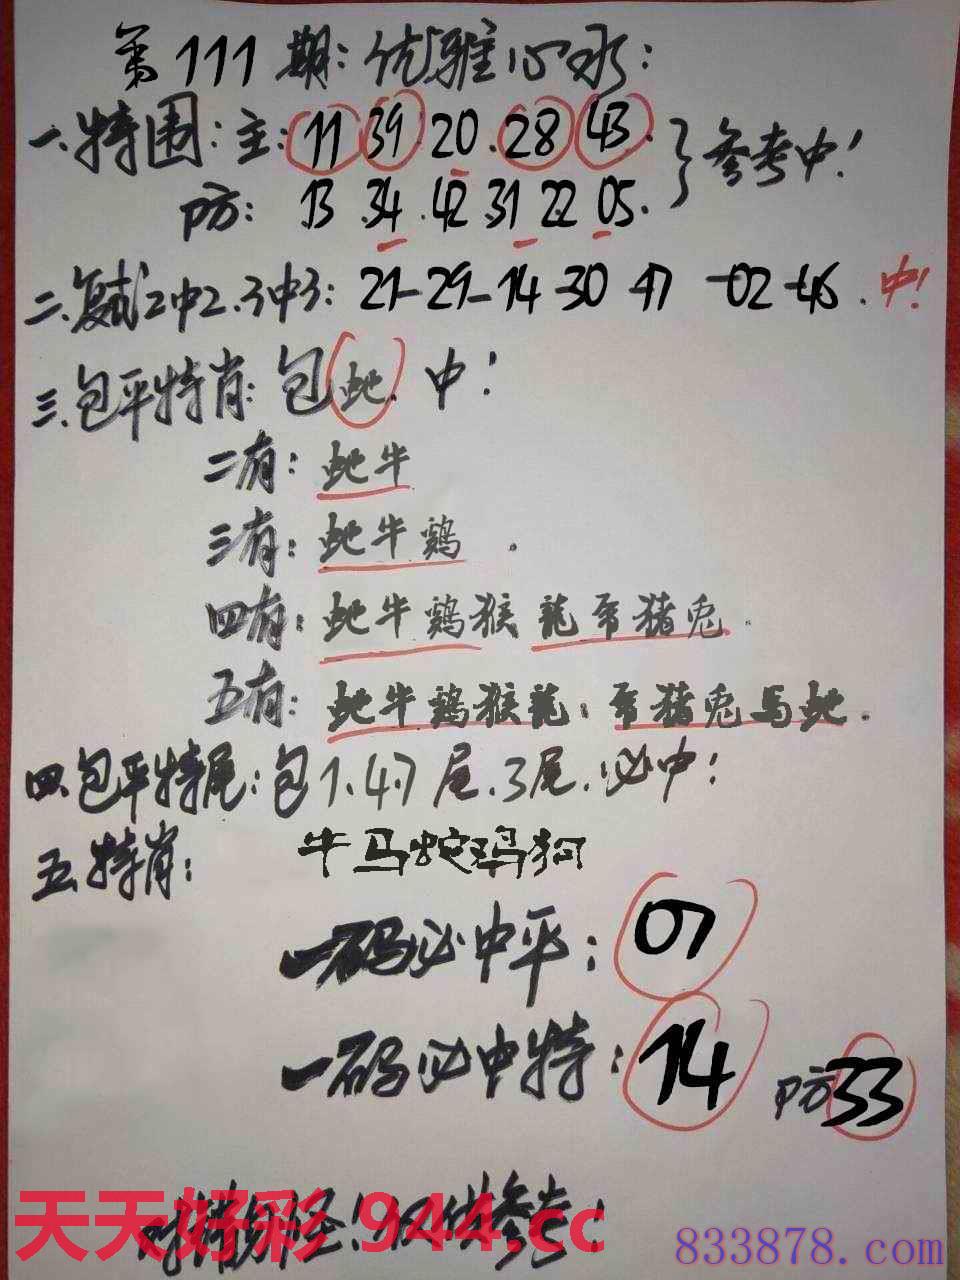 第111期:优雅心水:
一.特围:主:11 39 20.28 43.
防: 13.34.42.31 22 05. }参考中!
二.复式2中2.3中3: 21-29-14-30 47-02-46.中!
三.包平特肖:包蛇.中!
二有:蛇牛
三有:蛇牆鷄.
四有:蛇牛鷄猴龍 猪兎.
五有:蛇牛鷄猴龍 猪兎馬蛇.
四.包平特尾:包1.4.7尾.3尾.必中!
五.特肖: 牛马蛇鸡狗
一码必中平: 07
一码必中特: 14 防33
天天好彩 944.cc
仅供参考!
833878.com